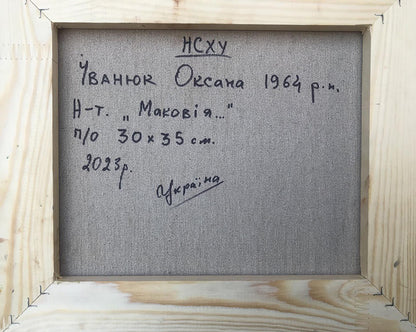 НСХУ
Іванюк Оксана 1964 р.н.
Н-т. „Маковія..."
п/о 30х35 см.
2023р.
Україна